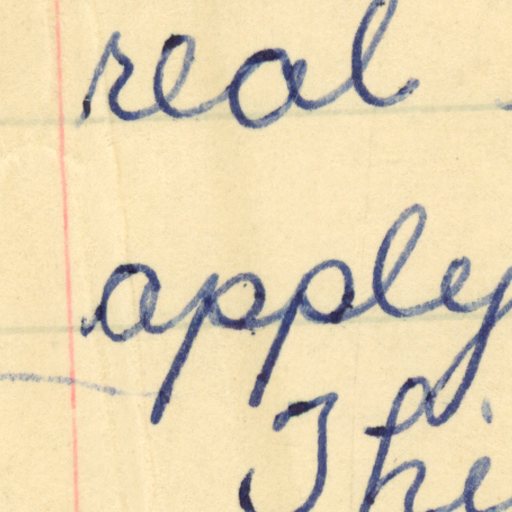 real
apply
Thi